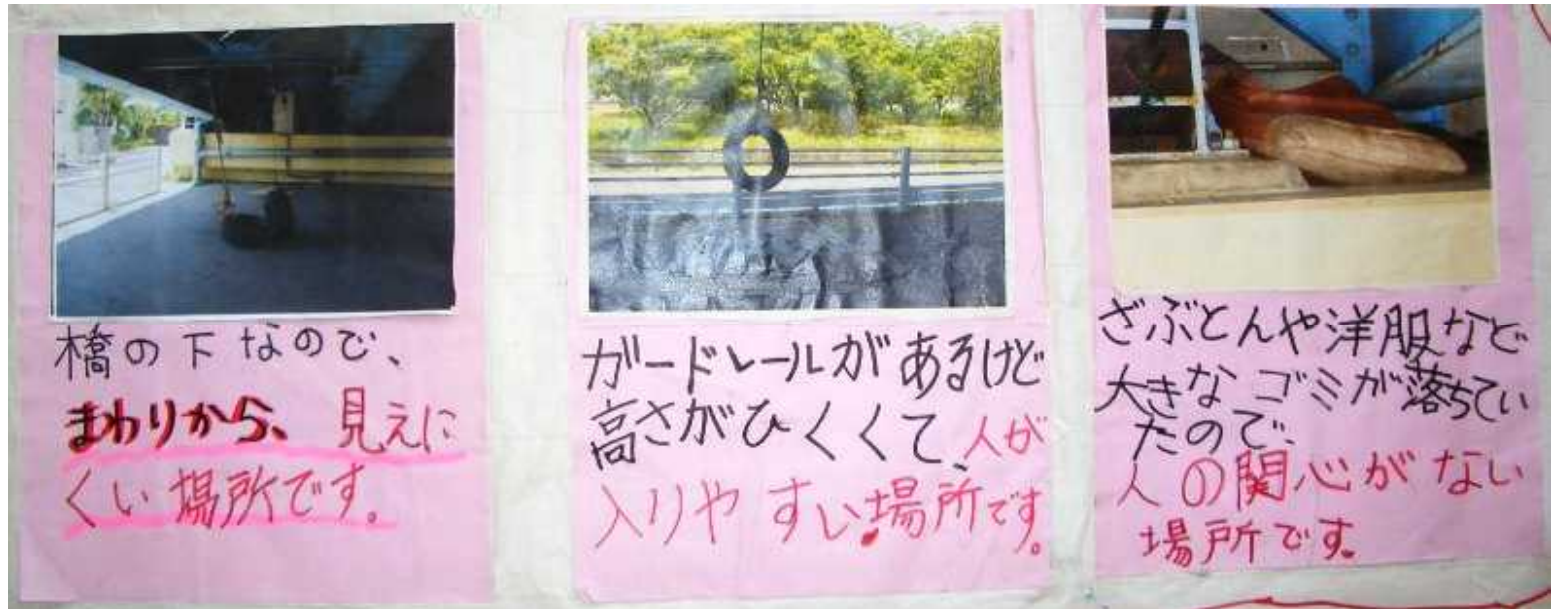 橋の下なので、
まわりから、見えに
くい場所です。
ガードレールがあるけど
高さがひくくて、人が
入りやすい場所です。
ざぶとんや洋服など
大きなゴミが落ちてい
たので、
人の関心がない
場所です。